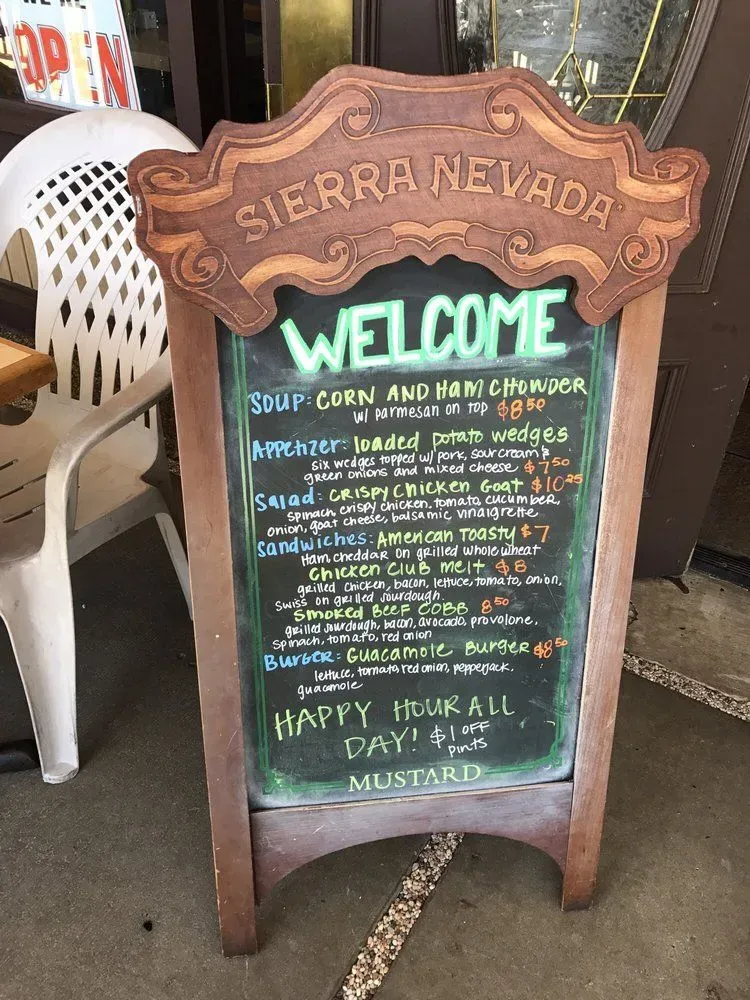 WE'RE
OPEN
SIERRA NEVADA
WELCOME
SOUP: CORN AND HAM CHOWDER
w/ parmesan on top $8.50
APPetizer: loaded potato wedges
six wedges topped w/ pork, sour cream &
green onions and mixed cheese $7.50
Salad: CRISPY CHICKEN Goat $10.25
spinach, crispy chicken, tomato, cucumber,
onion, goat cheese, balsamic vinaigrette
Sandwiches: American Toasty $7
Ham, cheddar on grilled whole wheat
Chicken Club melt $8
grilled chicken, bacon, lettuce, tomato, onion,
Swiss on grilled sourdough.
Smoked Beef COBB 8.50
grilled sourdough, bacon, avocado, provolone,
spinach, tomato, red onion
Burger: Guacamole Burger $8.50
lettuce, tomato, red onion, pepperjack,
guacamole
HAPPY HOUR ALL
DAY! $1 OFF
pints
MUSTARD